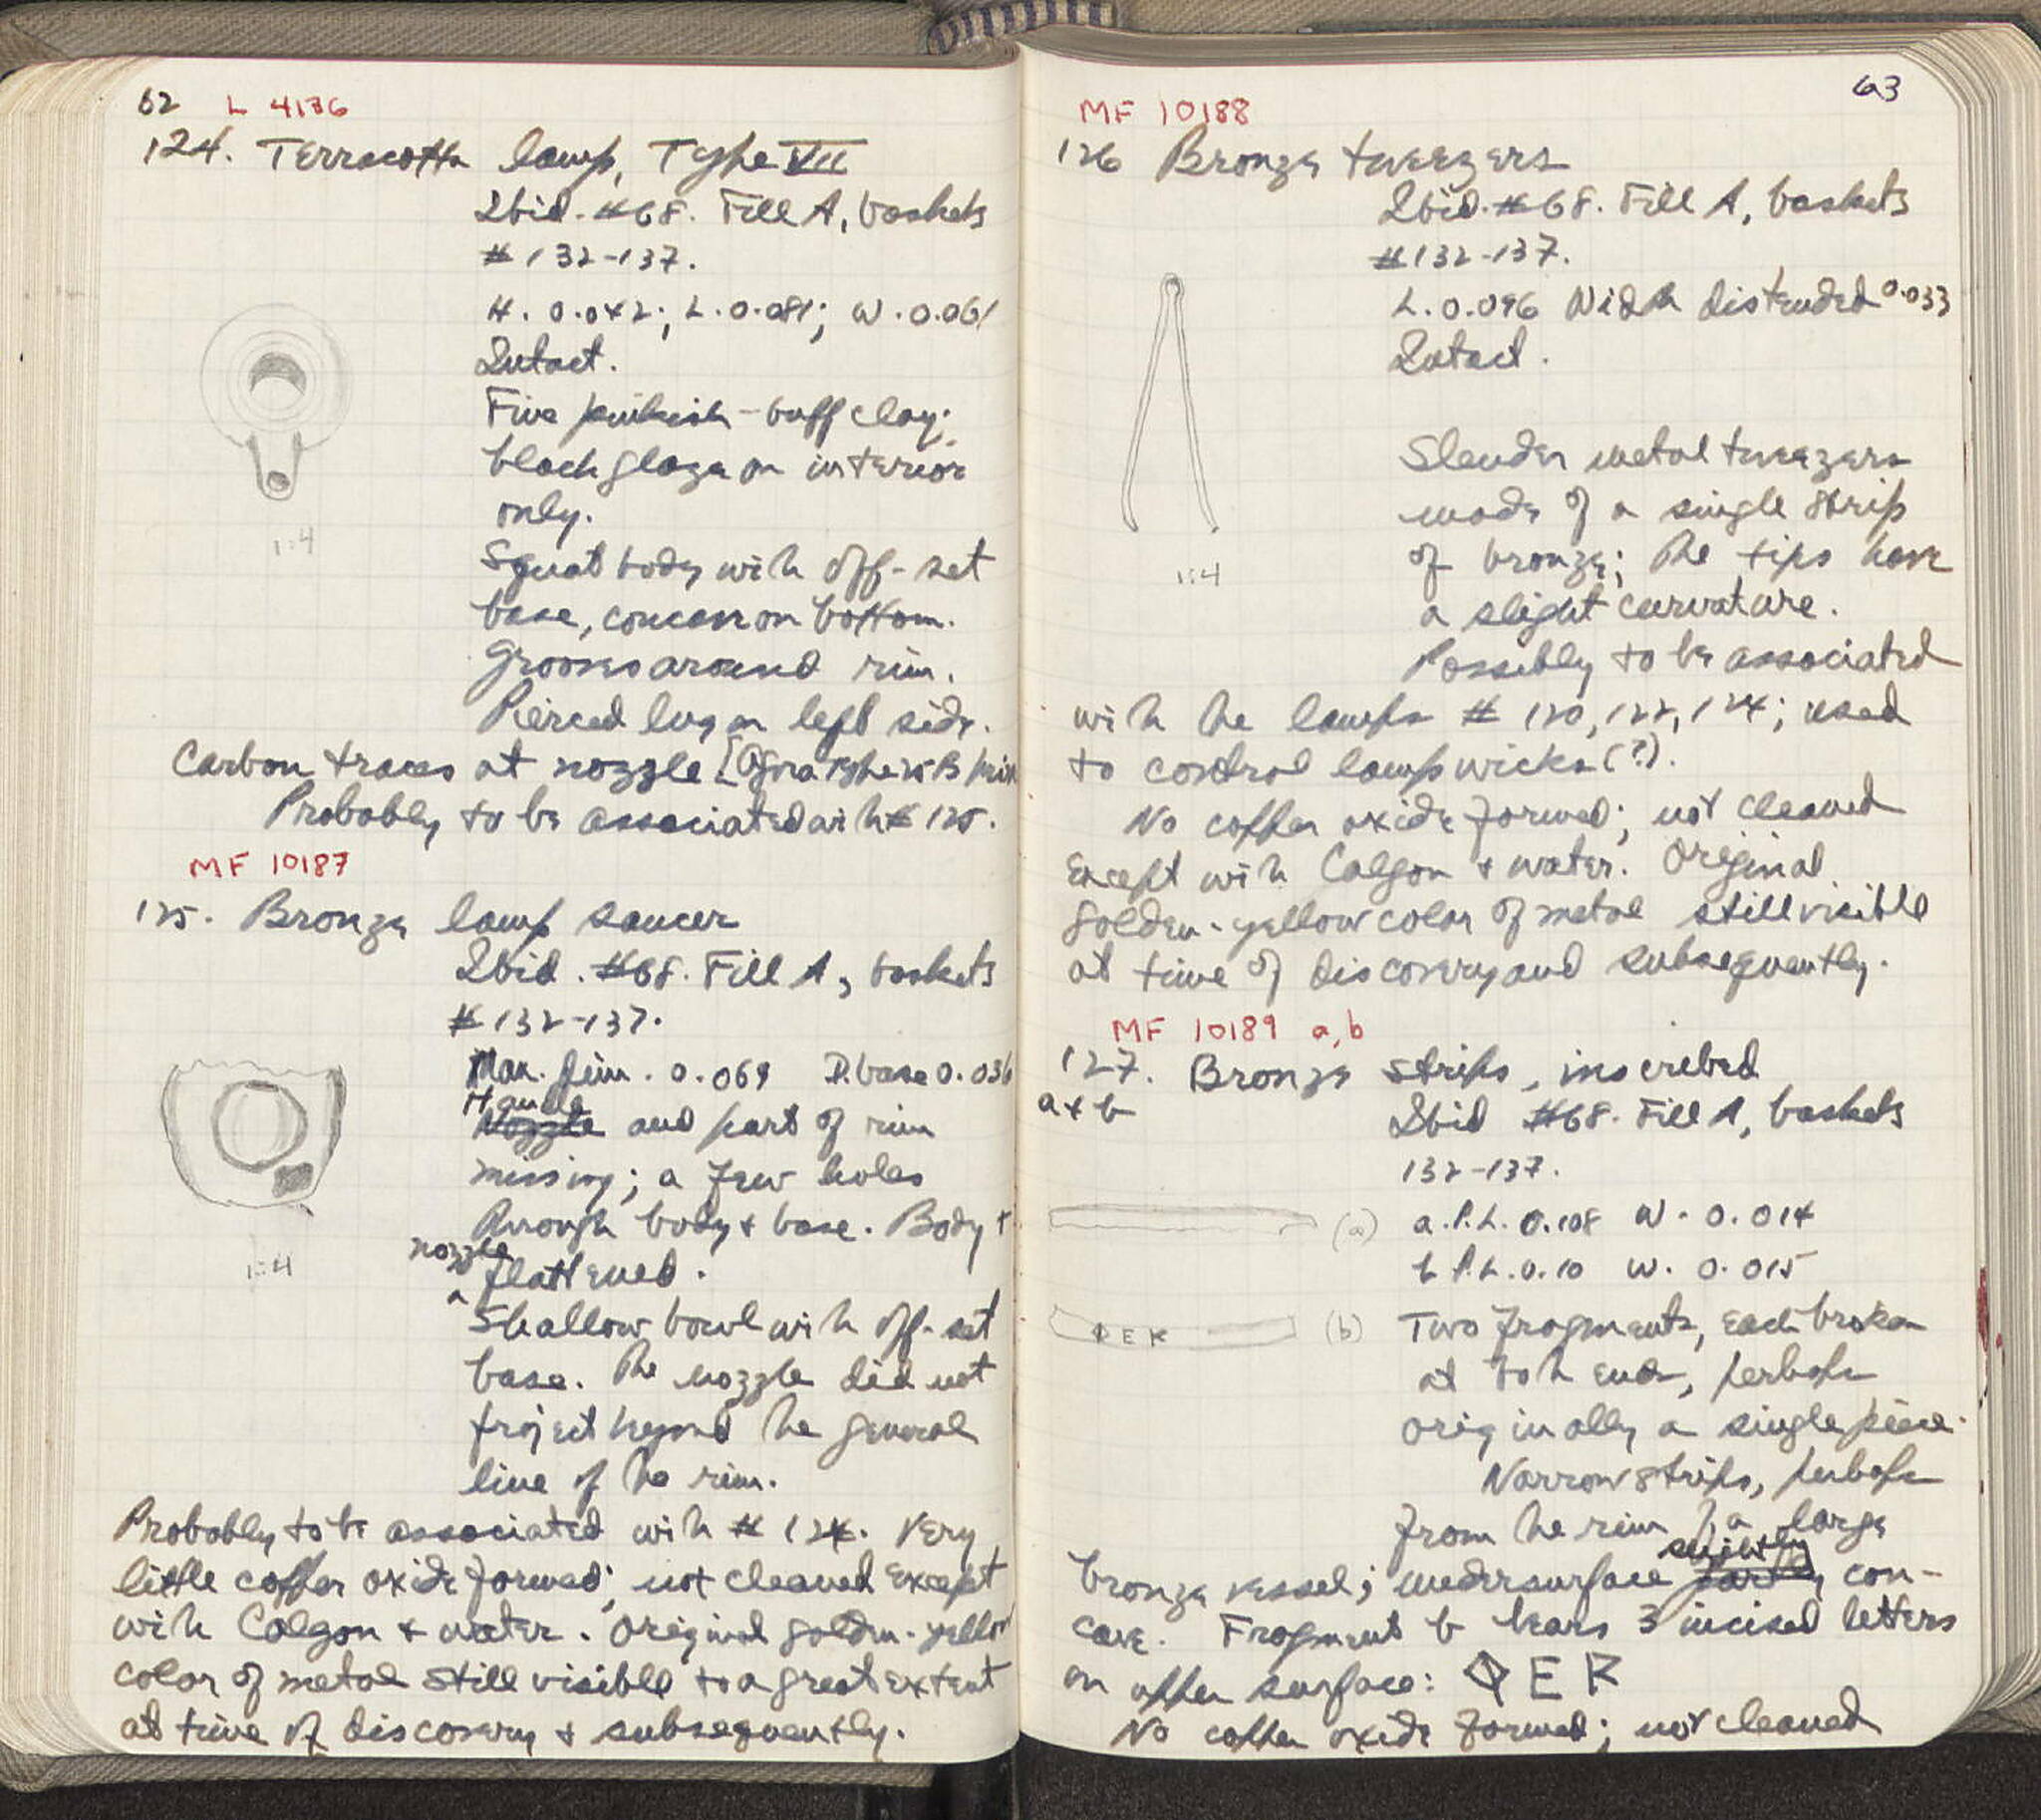 62 L 4136
124. Terracotta lamp, Type VII
Ibid. #68. Fill A, baskets
# 132-137.
H. 0.042; L. 0.081; W. 0.061
Intact.
Fine pinkish-buff clay;
black glaze on interior
only.
Squat body with off-set
base, concave on bottom.
Grooves around rim.
Pierced lug on left side.
Carbon traces at nozzle
Probably to be associated with # 125.
1:4
MF 10187
125. Bronze lamp saucer
Ibid. #68. Fill A, baskets
# 132-137.
Max. dim. 0.069 D. base 0.036
Handle
Nozzle and part of rim
missing; a few holes
through body + base. Body +
nozzle
flattened.
Shallow bowl with off-set
base. The nozzle did not
project beyond the general
line of the rim.
1:4
Probably to be associated with # 124. Very
little copper oxide formed; not cleaned except
with Calgon + water. Original golden-yellow
color of metal still visible to a great extent
at time of discovery + subsequently.
63
MF 10188
126 Bronze tweezers
Ibid. #68. Fill A, baskets
#132-137.
L. 0.096 Width distended 0.033
Intact.
Slender metal tweezers
made of a single strip
of bronze; the tips have
a slight curvature.
1:4
Possibly to be associated
with the lamps # 120, 122, 124; used
to control lamp wicks (?).
No copper oxide formed; not cleaned
except with Calgon + water. Original
golden-yellow color of metal still visible
at time of discovery and subsequently.
MF 10189 a,b
127. Bronze strips, inscribed
a + b
Ibid #68. Fill A, baskets
132-137.
(a) a. P.L. 0.108 W. 0.014
b P.L. 0.10 W. 0.015
ΦEK (b) Two fragments, each broken
at both ends, perhaps
originally a single piece.
Narrow strips, perhaps
from the rim of a large
slightly
bronze vessel; undersurface con-
cave. Fragment b bears 3 incised letters
on upper surface: Φ E K
No copper oxide formed; not cleaned